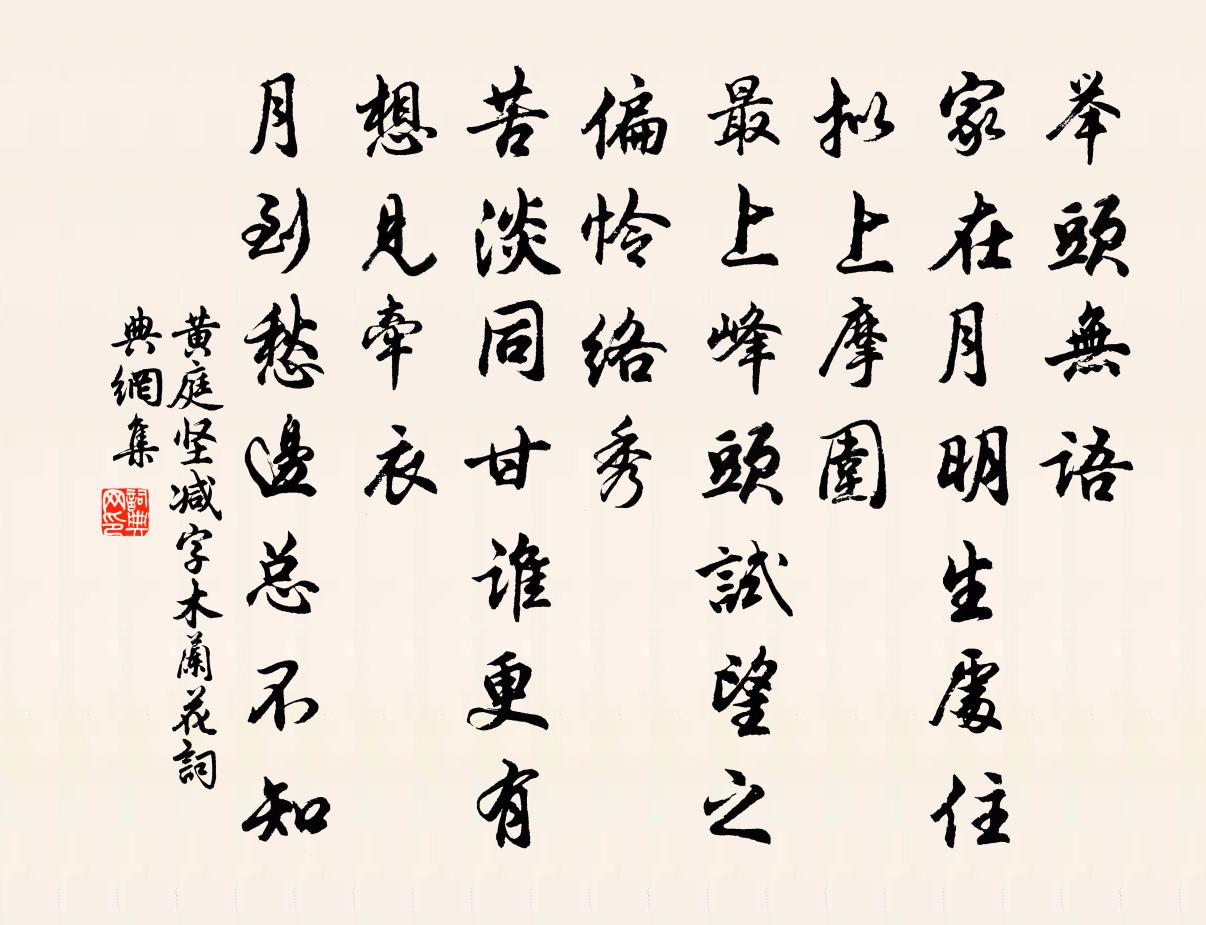 举頭無語
家在月明生處住
拟上摩圍
最上峰頭試望之
偏怜络秀
苦淡同甘誰更有
想見牵衣
月到愁邊总不知
黄庭坚减字木蘭花詞
典網集
詞典网印